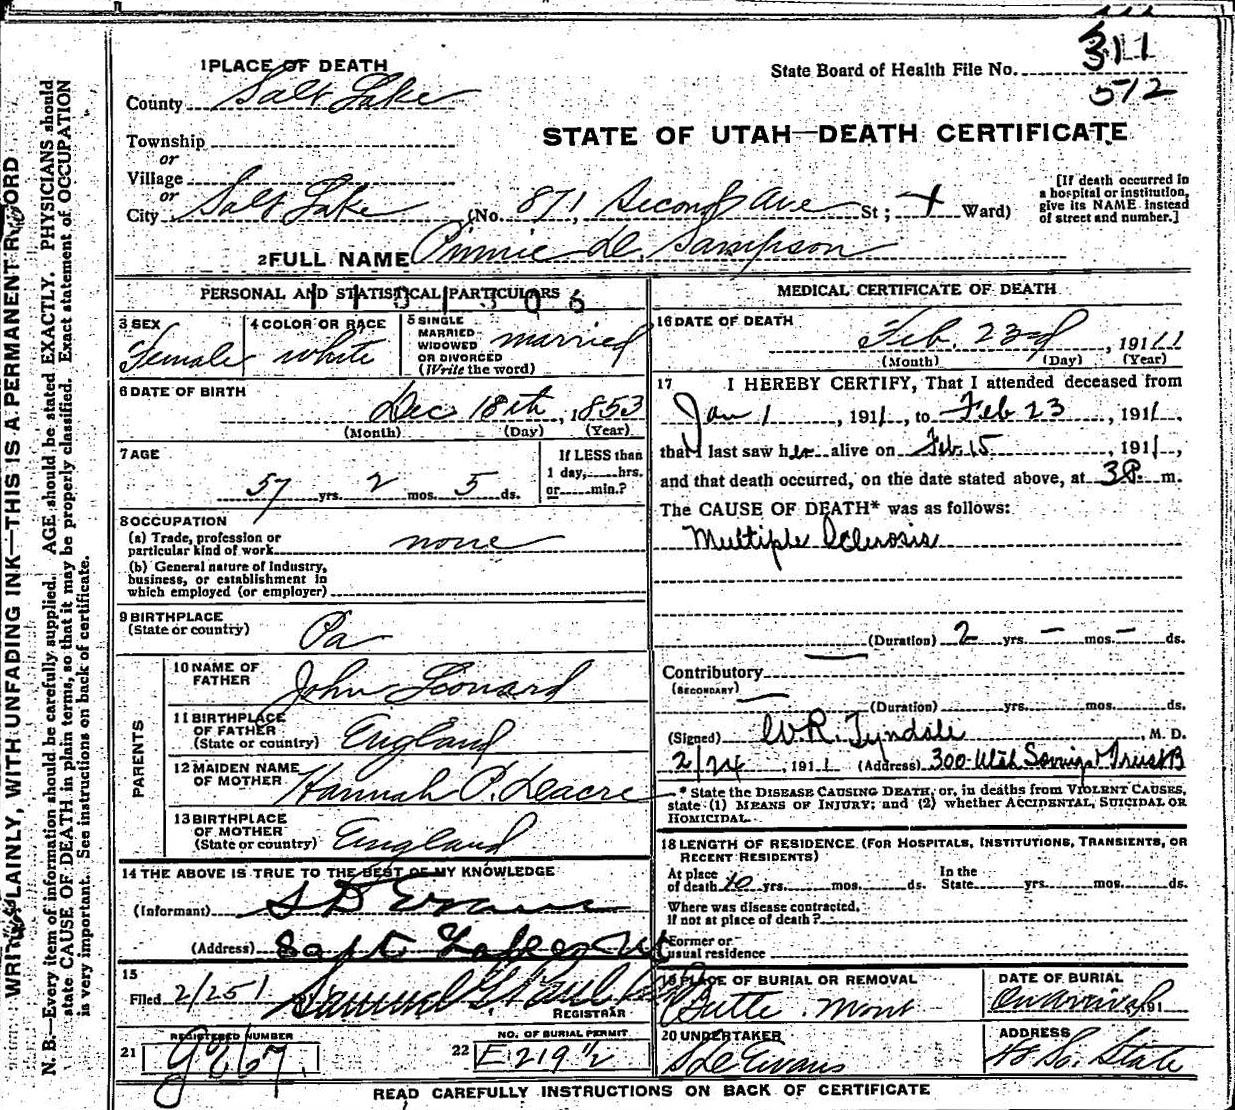 311
State Board of Health File No.
512
1 PLACE OF DEATH
County Salt Lake
STATE OF UTAH—DEATH CERTIFICATE
Township
or
Village
or
City Salt Lake (No. 871, Second Ave St; 4 Ward)
[If death occurred in a hospital or institution, give its NAME instead of street and number.]
2 FULL NAME Minnie L. Sampson
PERSONAL AND STATISTICAL PARTICULARS
3 SEX
Female
4 COLOR OR RACE
white
5 SINGLE MARRIED WIDOWED OR DIVORCED (Write the word)
married
6 DATE OF BIRTH
Dec 18th, 1853
(Month) (Day) (Year)
7 AGE
57 yrs. 2 mos. 5 ds.
If LESS than 1 day, hrs. or min.?
8 OCCUPATION
(a) Trade, profession or particular kind of work none
(b) General nature of Industry, business, or establishment in which employed (or employer)
9 BIRTHPLACE
(State or country) Pa
PARENTS
10 NAME OF FATHER John Leonard
11 BIRTHPLACE OF FATHER (State or country) England
12 MAIDEN NAME OF MOTHER Hannah P. Deacre
13 BIRTHPLACE OF MOTHER (State or country) England
14 THE ABOVE IS TRUE TO THE BEST OF MY KNOWLEDGE
(Informant) S D Evans
(Address) Salt Lake City Ut
15
Filed 2/25 1
REGISTRAR
REGISTERED NUMBER
21 G267
NO. OF BURIAL PERMIT
22 E 219 1/2
MEDICAL CERTIFICATE OF DEATH
16 DATE OF DEATH
Feb. 23rd, 1911
(Month) (Day) (Year)
17 I HEREBY CERTIFY, That I attended deceased from
Jan 1, 1911, to Feb 23, 1911,
that I last saw her alive on Feb 15, 1911,
and that death occurred, on the date stated above, at 3 P. m.
The CAUSE OF DEATH* was as follows:
Multiple Sclerosis
(Duration) 2 yrs. — mos. — ds.
Contributory
(SECONDARY)
(Duration) yrs. mos. ds.
(Signed) W. R. Tyndale, M. D.
2/24, 1911 (Address) 300 Utah Savings & Trust B
* State the DISEASE CAUSING DEATH, or, in deaths from VIOLENT CAUSES, state (1) MEANS OF INJURY; and (2) whether ACCIDENTAL, SUICIDAL OR HOMICIDAL.
18 LENGTH OF RESIDENCE (FOR HOSPITALS, INSTITUTIONS, TRANSIENTS, OR RECENT RESIDENTS)
At place of death 10 yrs. mos. ds. In the State yrs. mos. ds.
Where was disease contracted, if not at place of death?
Former or usual residence
19 PLACE OF BURIAL OR REMOVAL
Butte. Mont
DATE OF BURIAL
On arrival, 191
20 UNDERTAKER
S D Evans
ADDRESS
48 So. State
READ CAREFULLY INSTRUCTIONS ON BACK OF CERTIFICATE
WRITE PLAINLY, WITH UNFADING INK—THIS IS A PERMANENT RECORD
N. B.—Every item of information should be carefully supplied. AGE should be stated EXACTLY. PHYSICIANS should
state CAUSE OF DEATH in plain terms, so that it may be properly classified. Exact statement of OCCUPATION
is very important. See instructions on back of certificate.